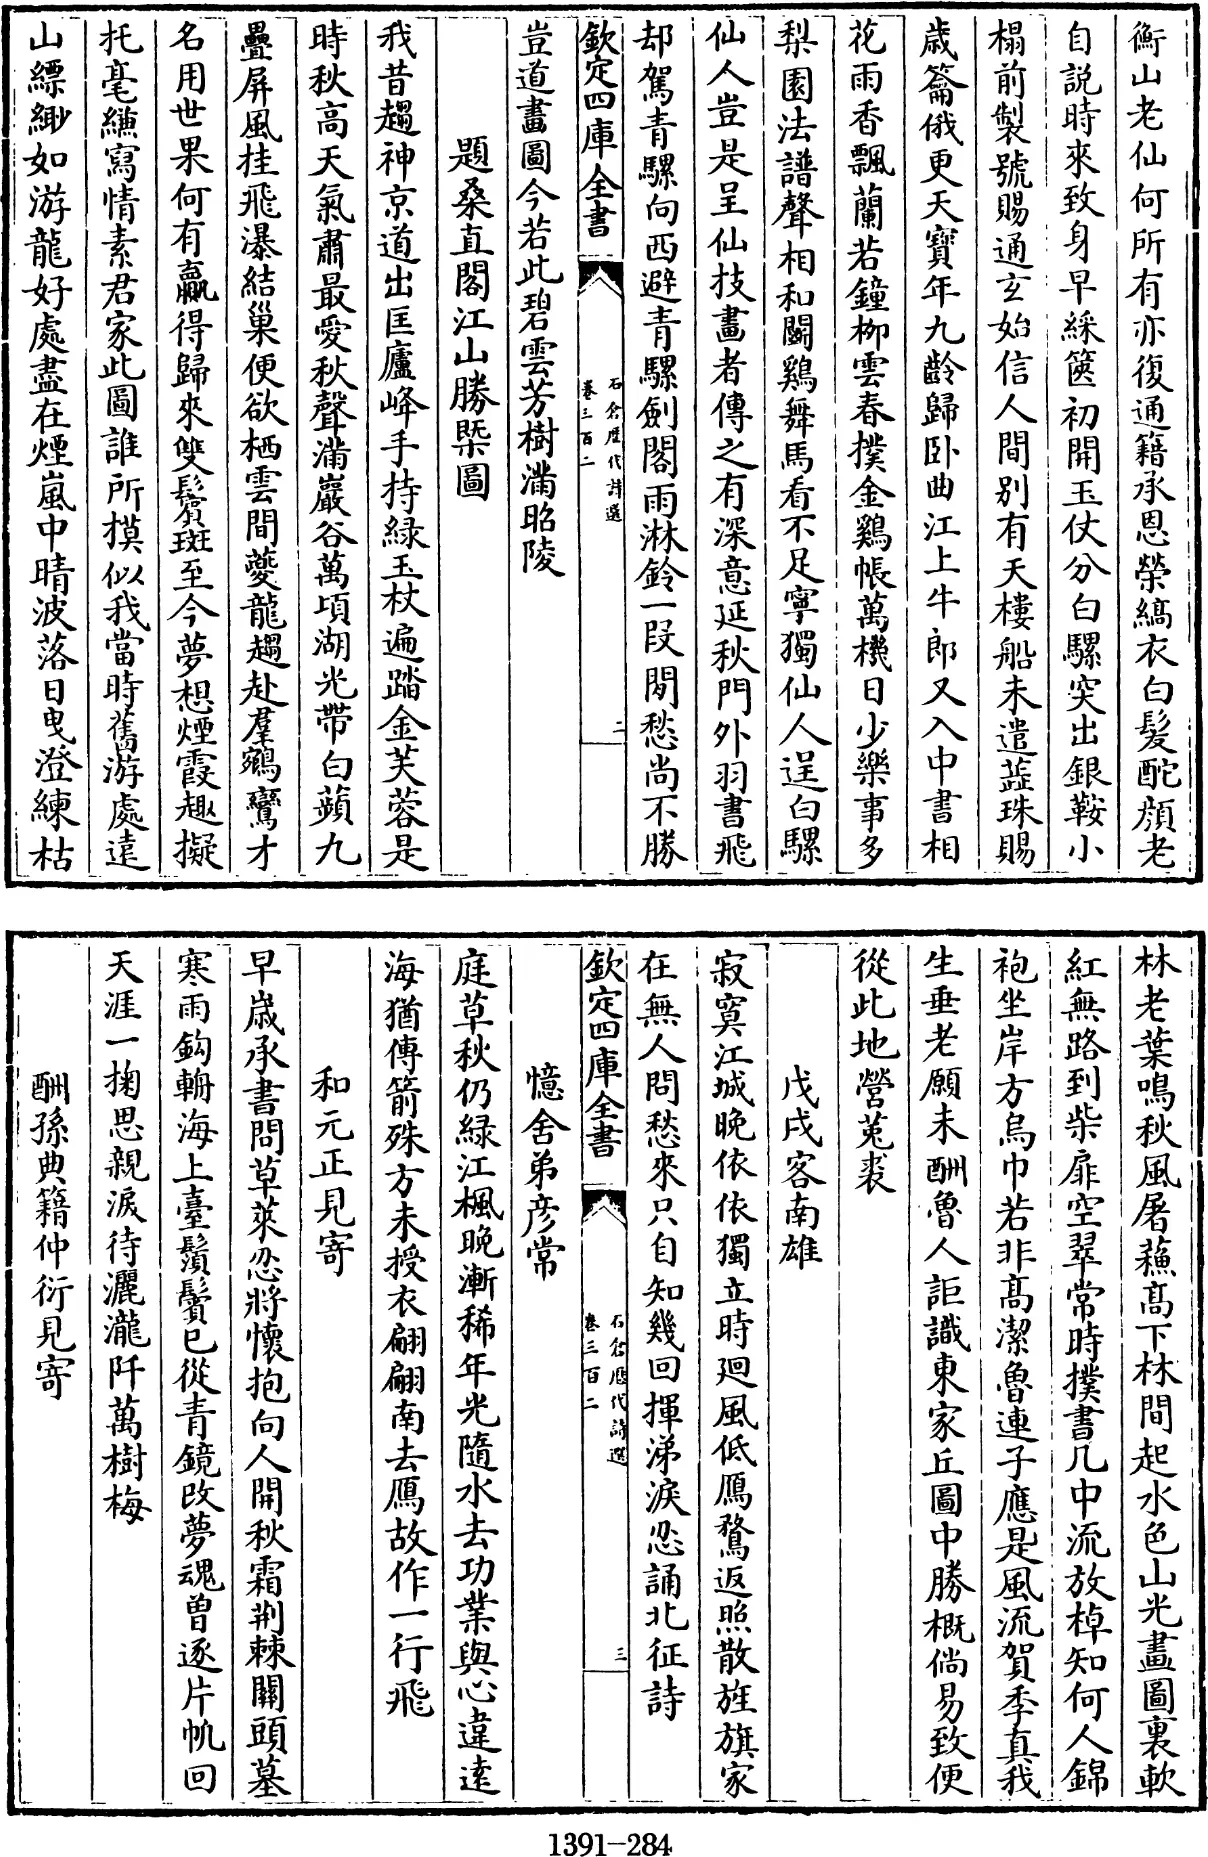 衡山老仙何所有亦復通籍承恩榮縞衣白髪酡顔老
自説時來致身早綵篋初開玉仗分白騾突出銀鞍小
榻前製號賜通玄始信人間别有天樓船未遣蕋珠賜
歳籥俄更天寶年九齡歸卧曲江上牛郎又入中書相
花雨香飄蘭若鐘栁雲春撲金鷄帳萬機日少樂事多
梨園法譜聲相和鬭鷄舞馬看不足寧獨仙人逞白騾
仙人豈是呈仙技畫者傳之有深意延秋門外羽書飛
却駕青騾向西避青騾劍閣雨淋鈴一段閒愁尚不勝
欽定四庫全書
石倉歴代詩選
卷三百二
二
豈道畫圖今若此碧雲芳樹滿昭陵
題桑直閣江山勝槩圖
我昔趨神京道出匡廬峰手持緑玉杖遍踏金芙蓉是
時秋高天氣肅最愛秋聲滿巖谷萬頃湖光帶白蘋九
疊屏風挂飛瀑結巢便欲栖雲間夔龍趨赴羣鵷鸞才
名用世果何有贏得歸來雙鬢斑至今夢想煙霞趣擬
托毫縑寫情素君家此圖誰所摸似我當時舊游處逺
山縹緲如游龍好處盡在煙嵐中晴波落日曳澄練枯
林老葉鳴秋風屠蘓髙下林間起水色山光畫圖裏軟
紅無路到柴扉空翠常時撲書几中流放棹知何人錦
袍坐岸方烏巾若非髙潔魯連子應是風流賀季真我
生垂老願未酬魯人詎識東家丘圖中勝概倘易致便
從此地營莵裘
戊戌客南雄
寂寞江城晚依依獨立時廻風低鴈鶩返照散旌旗家
在無人問愁來只自知幾回揮涕淚忍誦北征詩
欽定四庫全書
石倉歴代詩選
卷三百二
三
憶舍弟彦常
庭草秋仍緑江楓晚漸稀年光隨水去功業與心違逺
海猶傳箭殊方未授衣翩翩南去鴈故作一行飛
和元正見寄
早歳承書問草萊忍將懷抱向人開秋霜荆棘關頭墓
寒雨鈎輈海上臺鬚鬢已從青鏡改夢魂曽逐片帆回
天涯一掬思親淚待灑瀧阡萬樹梅
酬孫典籍仲衍見寄
1391-284